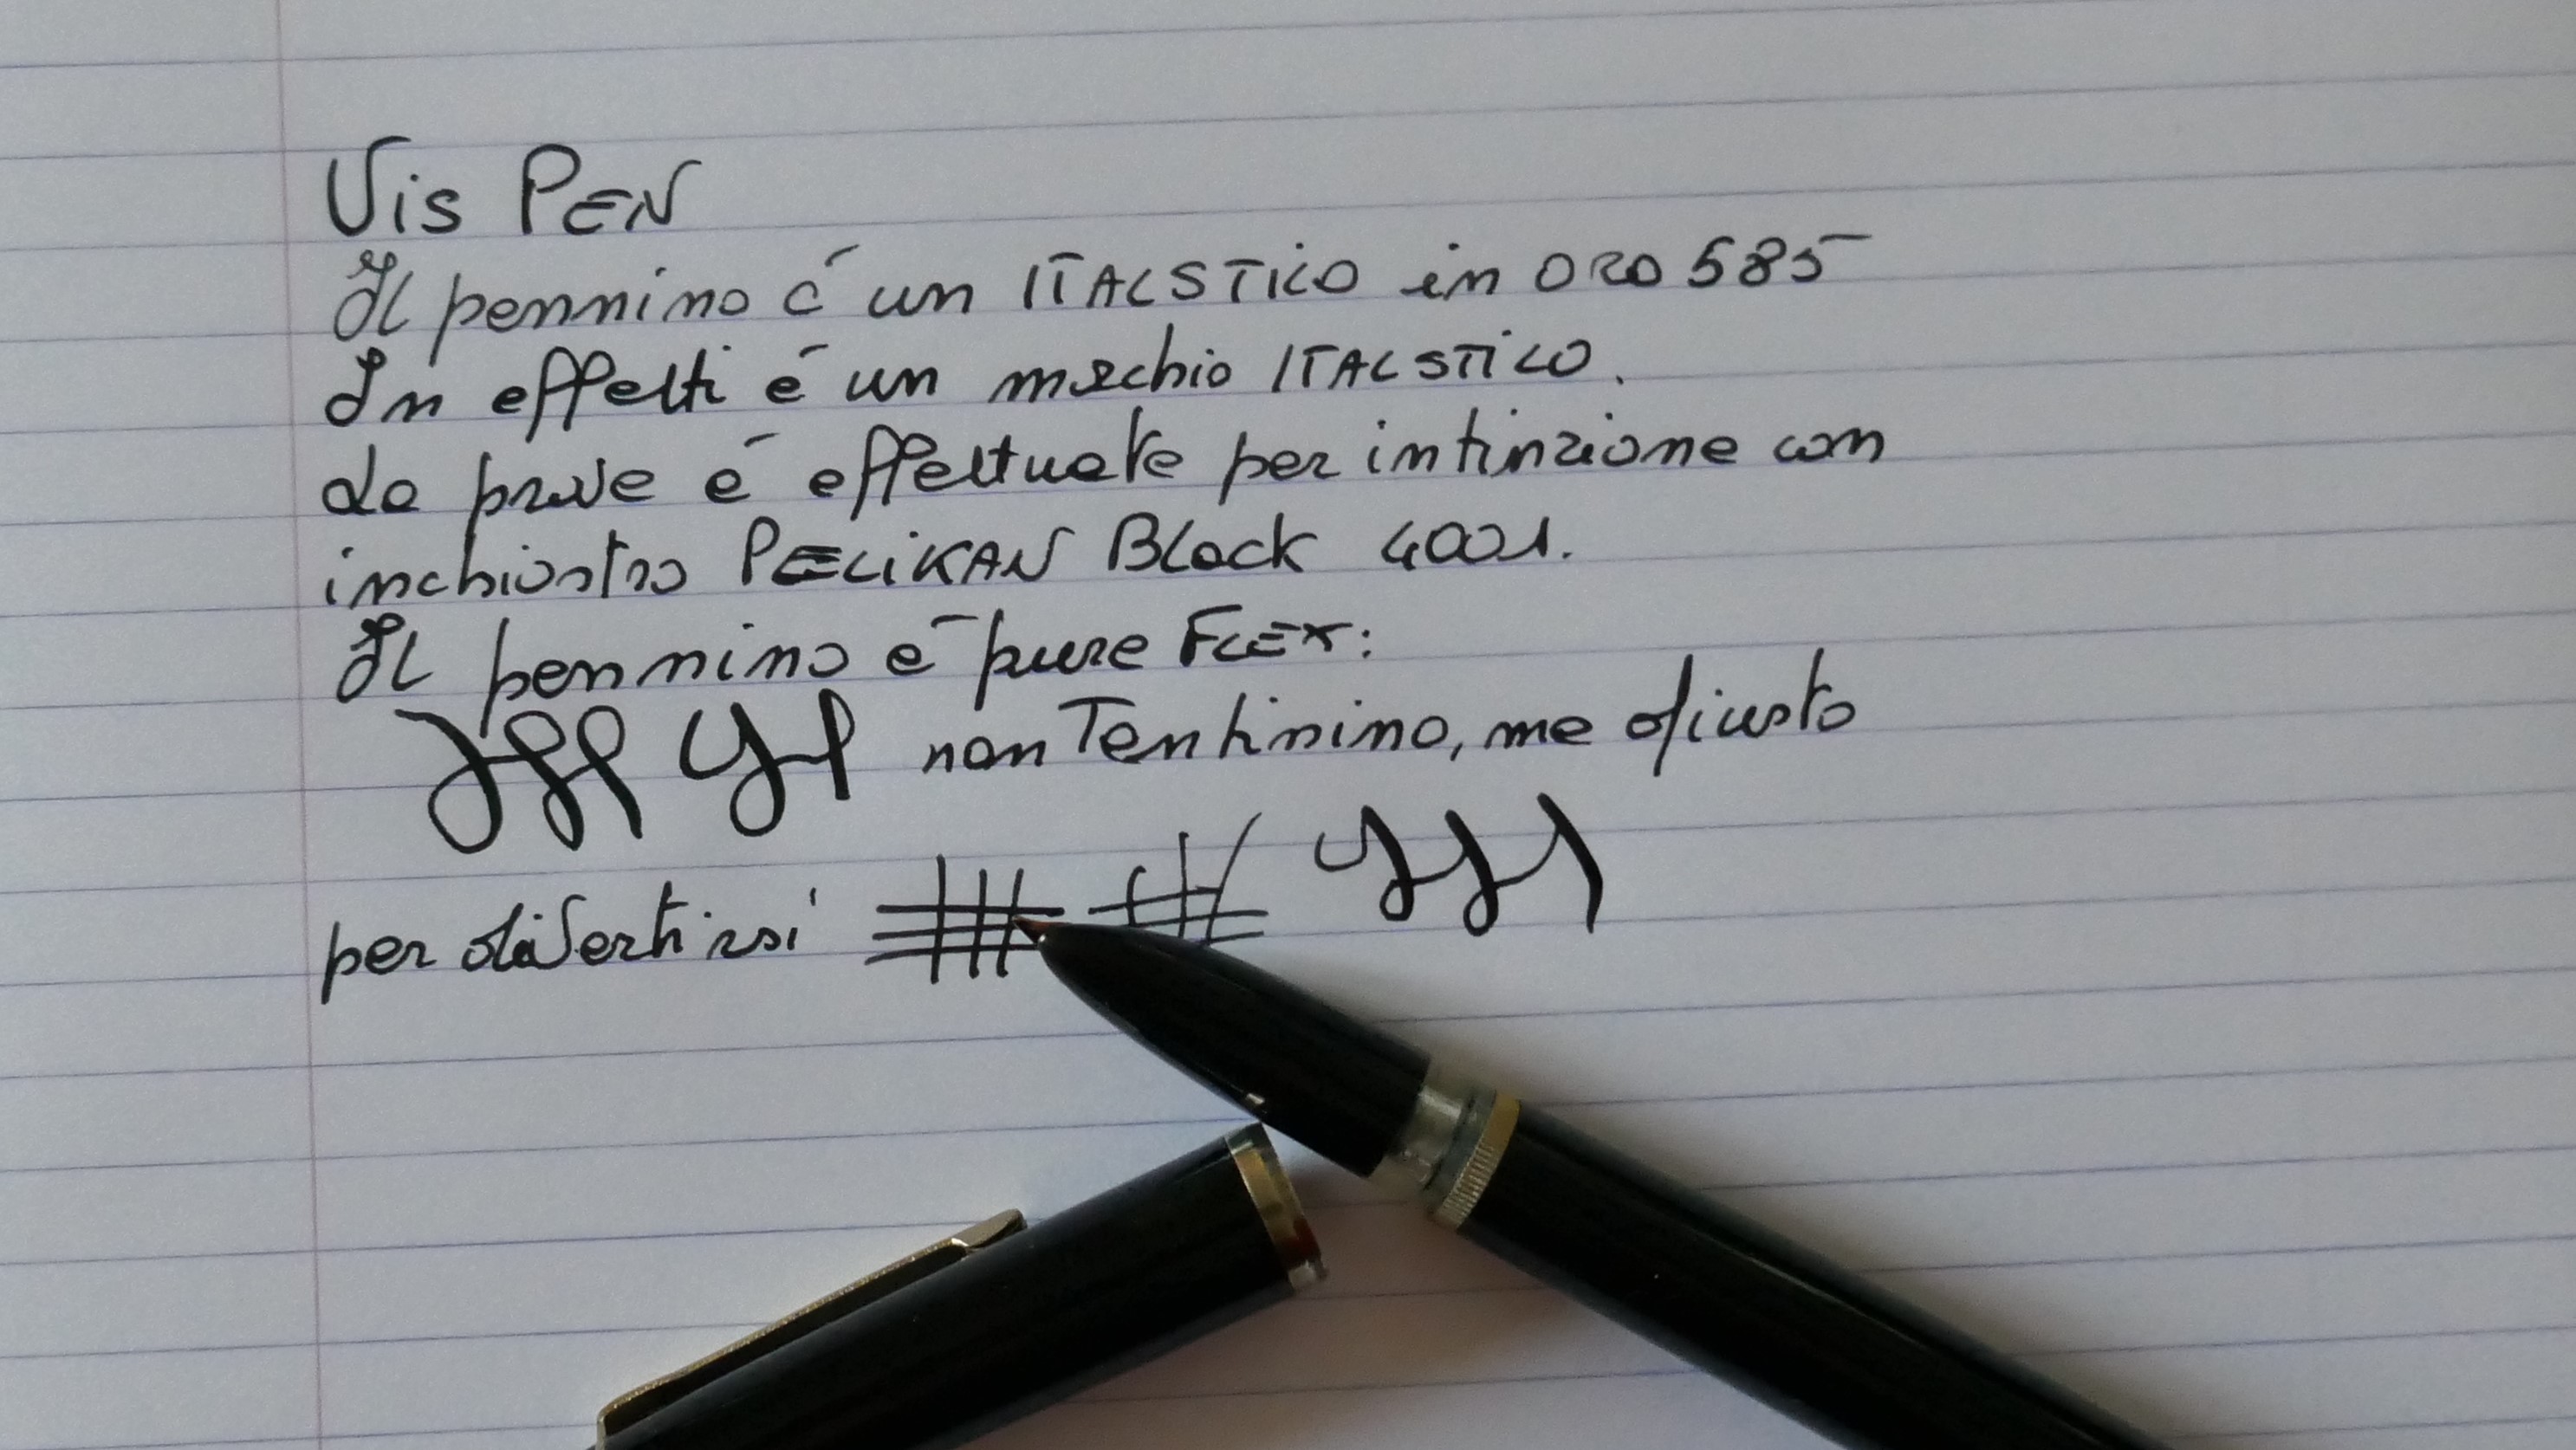 Vis PEN
Il pennino é un ITALSTILO in ORO 585
In effetti é un mrchio ITALSTILO.
La prova é effettuata per intinzione con
inchiostro PELIKAN Black 4001.
Il pennino é pure FLEX:
non Tantinino, ma giusto
per divertirsi